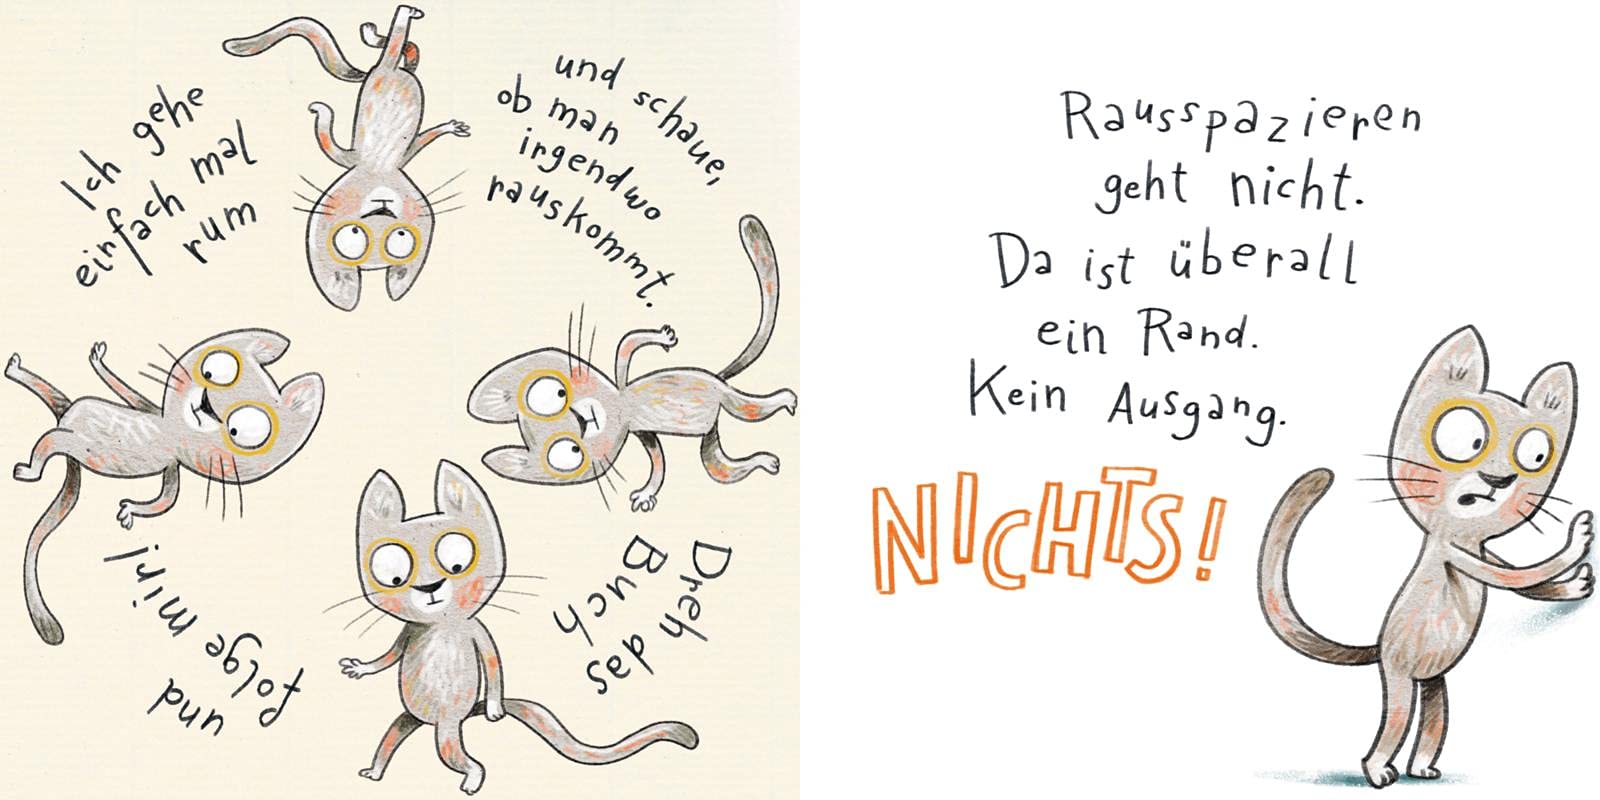 Ich gehe
einfach mal
rum
und schaue,
ob man
irgendwo
rauskommt.
Dreh das
Buch
und
folge mir!
Rausspazieren
geht nicht.
Da ist überall
ein Rand.
Kein Ausgang.
NICHTS!